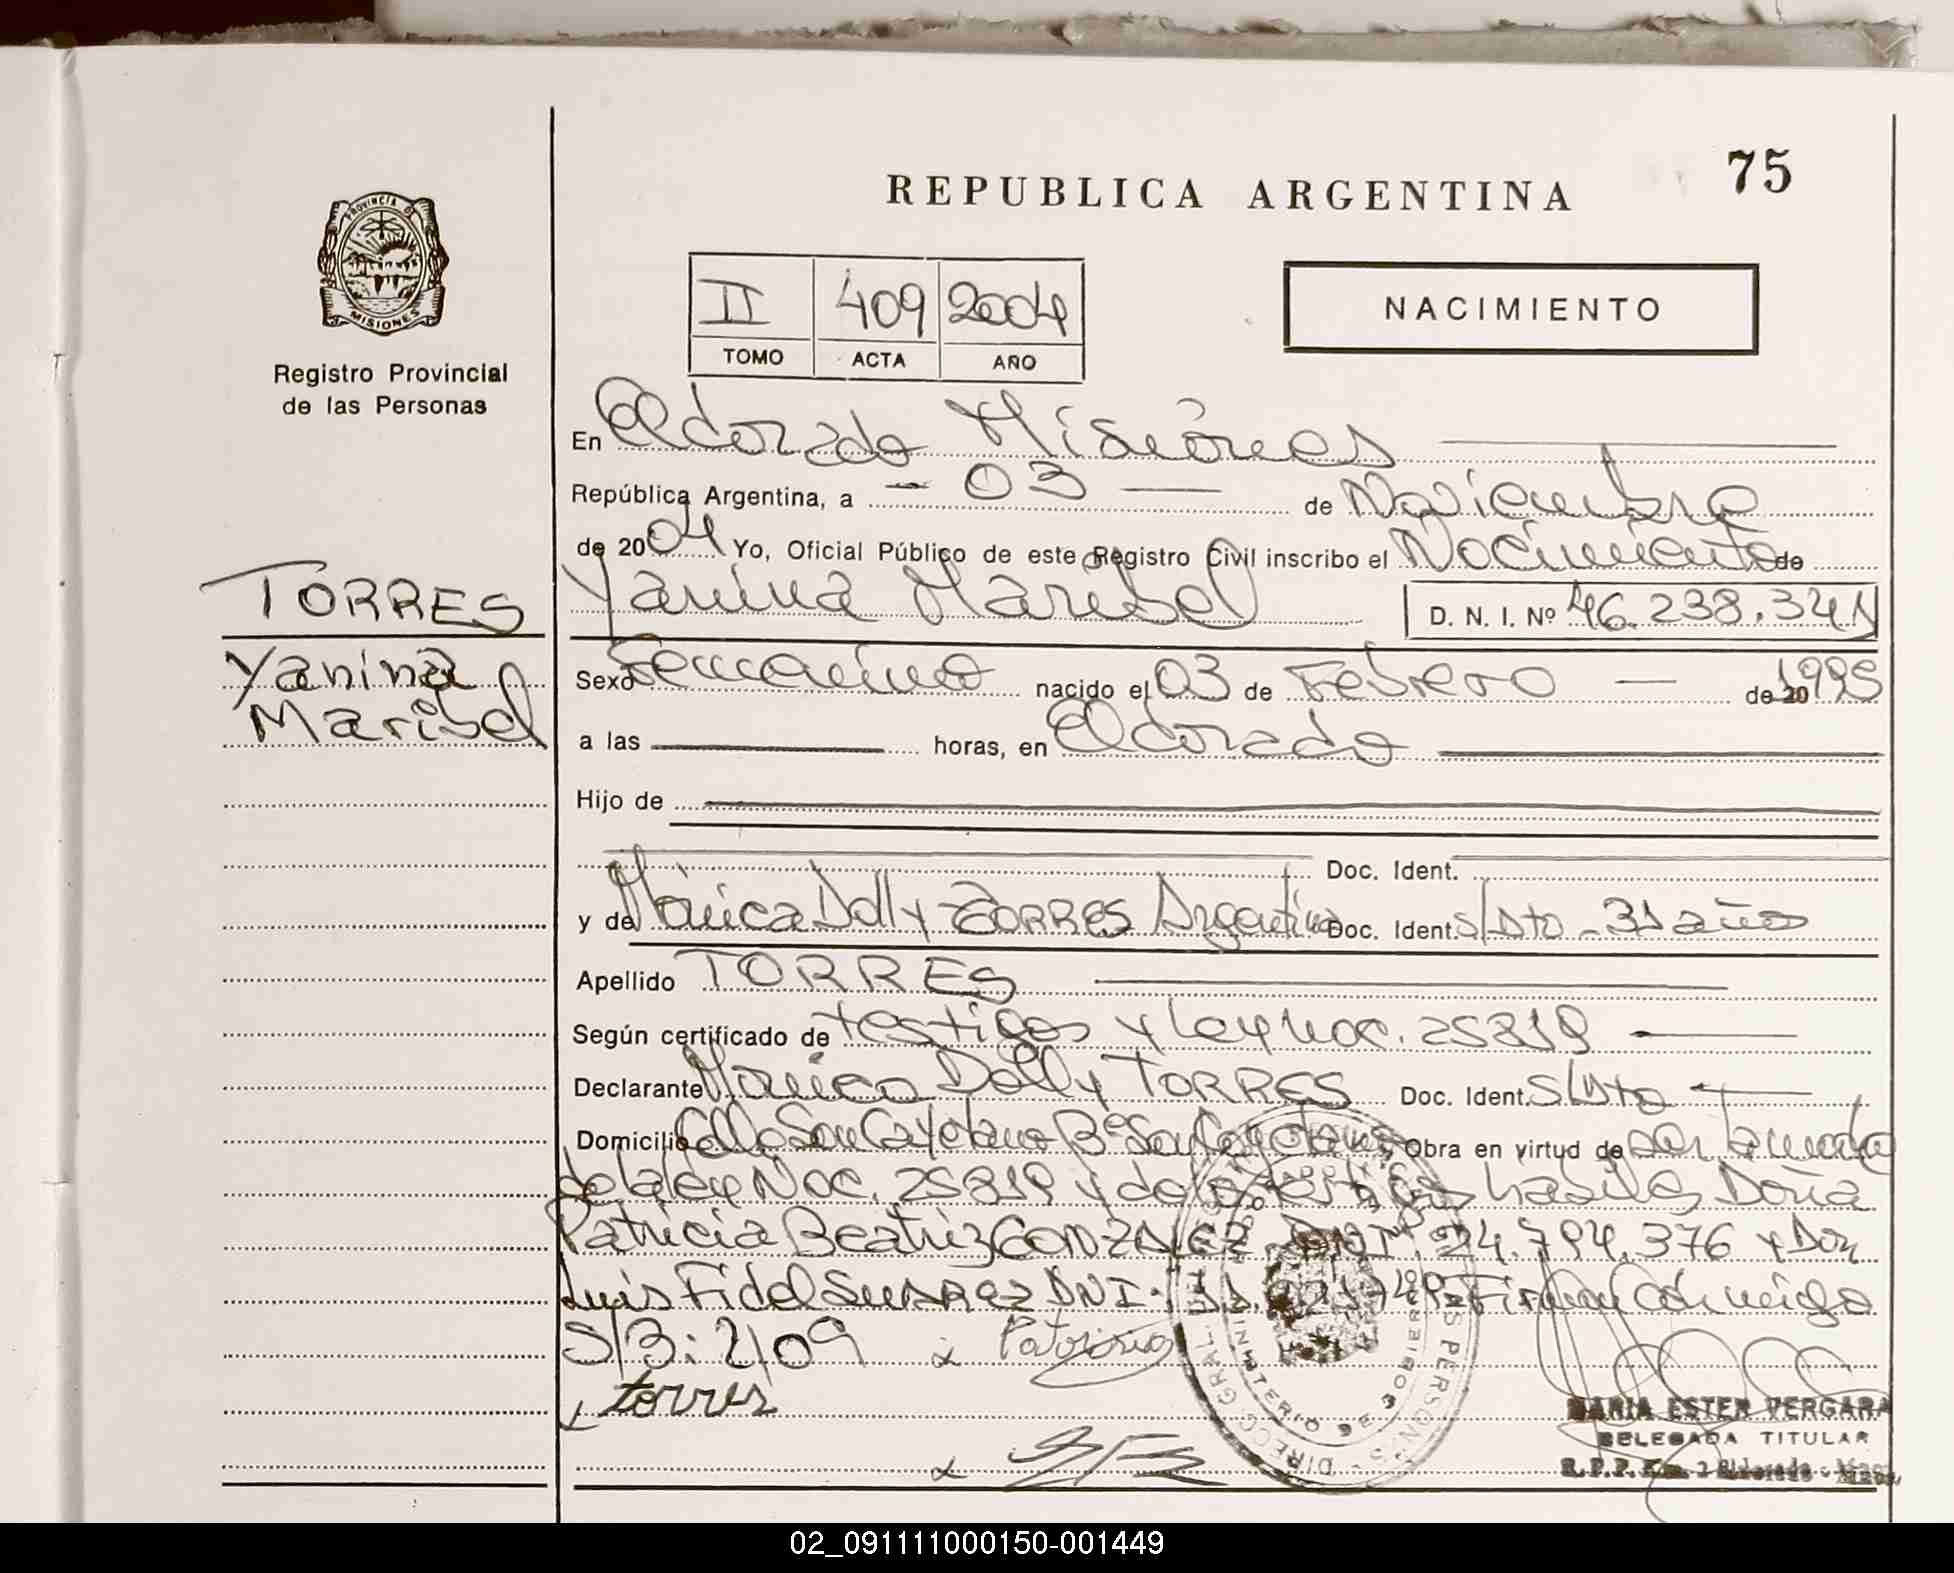 75
REPUBLICA ARGENTINA
PROVINCIA D
MISIONES
Registro Provincial
de las Personas
II 409 2004
TOMO ACTA AÑO
NACIMIENTO
En Eldorado Misiones
República Argentina, a - 03 - de Noviembre
de 2004 Yo, Oficial Público de este Registro Civil inscribo el Nacimiento de
Yanina Maribel D. N. I. Nº 46.238.341
TORRES
Yanina
Maribel
Sexo Femenino nacido el 03 de Febrero - de 20 1995
a las horas, en Eldorado
Hijo de
Doc. Ident.
y de Mónica Dolly TORRES Argentina Doc. Ident. S/Dto - 31 años
Apellido TORRES
Según certificado de testigos y Ley Nac. 25819
Declarante Mónica Dolly TORRES Doc. Ident. S/Dto
Domicilio Calle San Cayetano Bº San Cayetano, Obra en virtud de
de la ley Nac. 25819 y de testigos habiles Doña
Patricia Beatriz GONZALEZ DNI Nº 24.794.376 y Don
Luis Fidel SUAREZ DNI: Firman conmigo
S/B: 2/09
torres
MARIA ESTER VERGARA
DELEGADA TITULAR
R.P.P. Eldorado
02_091111000150-001449